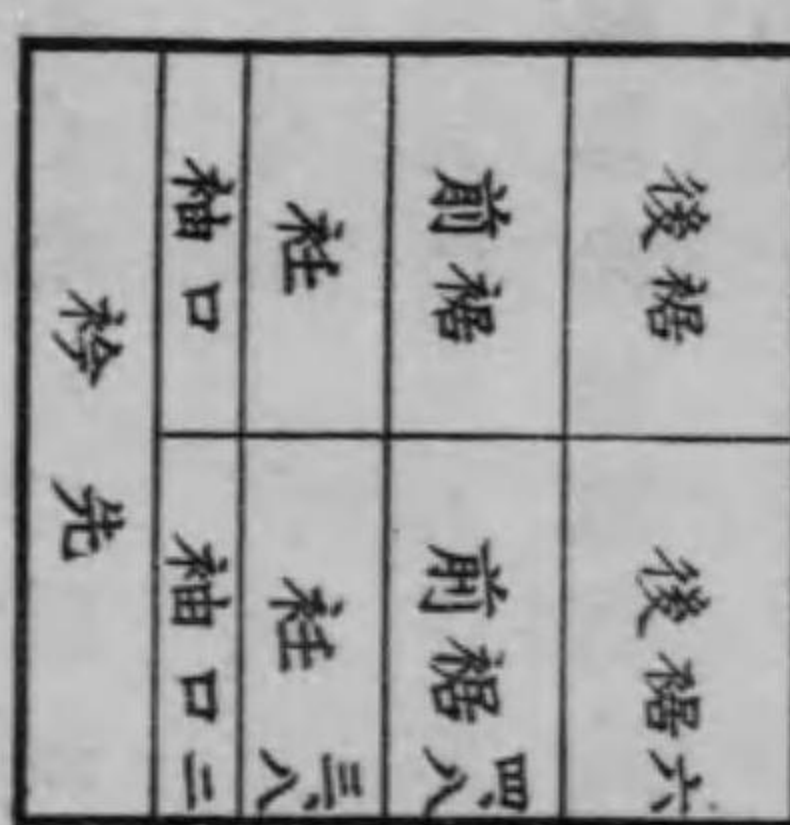 後裾
後裾六
前裾
前裾四、八
衽
衽三、八
袖口
袖口二
衿先